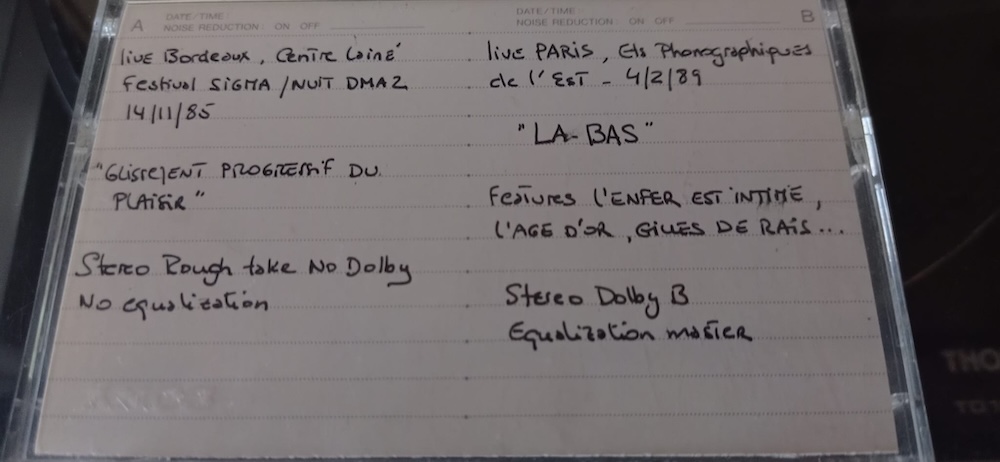 A
DATE/TIME:
NOISE REDUCTION: ON OFF
live Bordeaux, Centre Lainé
Festival SIGMA/NUIT DMA2
14/11/85
"GLISSEMENT PROGRESSIF DU
PLAISIR"
Stereo Rough take No Dolby
No equalization
B
DATE/TIME:
NOISE REDUCTION: ON OFF
live PARIS, Ets Phonographiques
de l'EST - 4/2/89
"LA-BAS"
Features L'ENFER EST INTIME,
L'AGE D'OR, GILLES DE RAIS...
Stereo Dolby B
Equalization master
THO